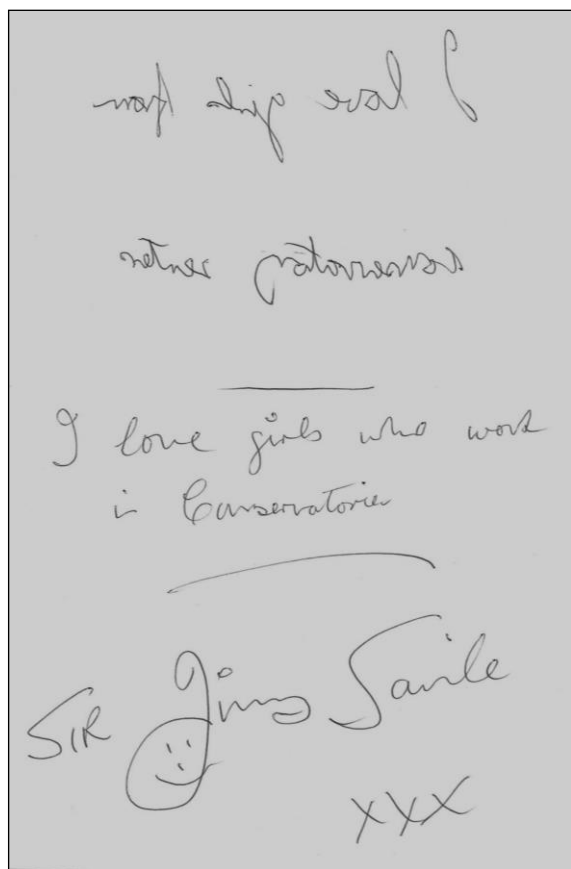 I love girls from
conservatory
I love girls who work
in Conservatories
SIR Jimmy Savile
xxx